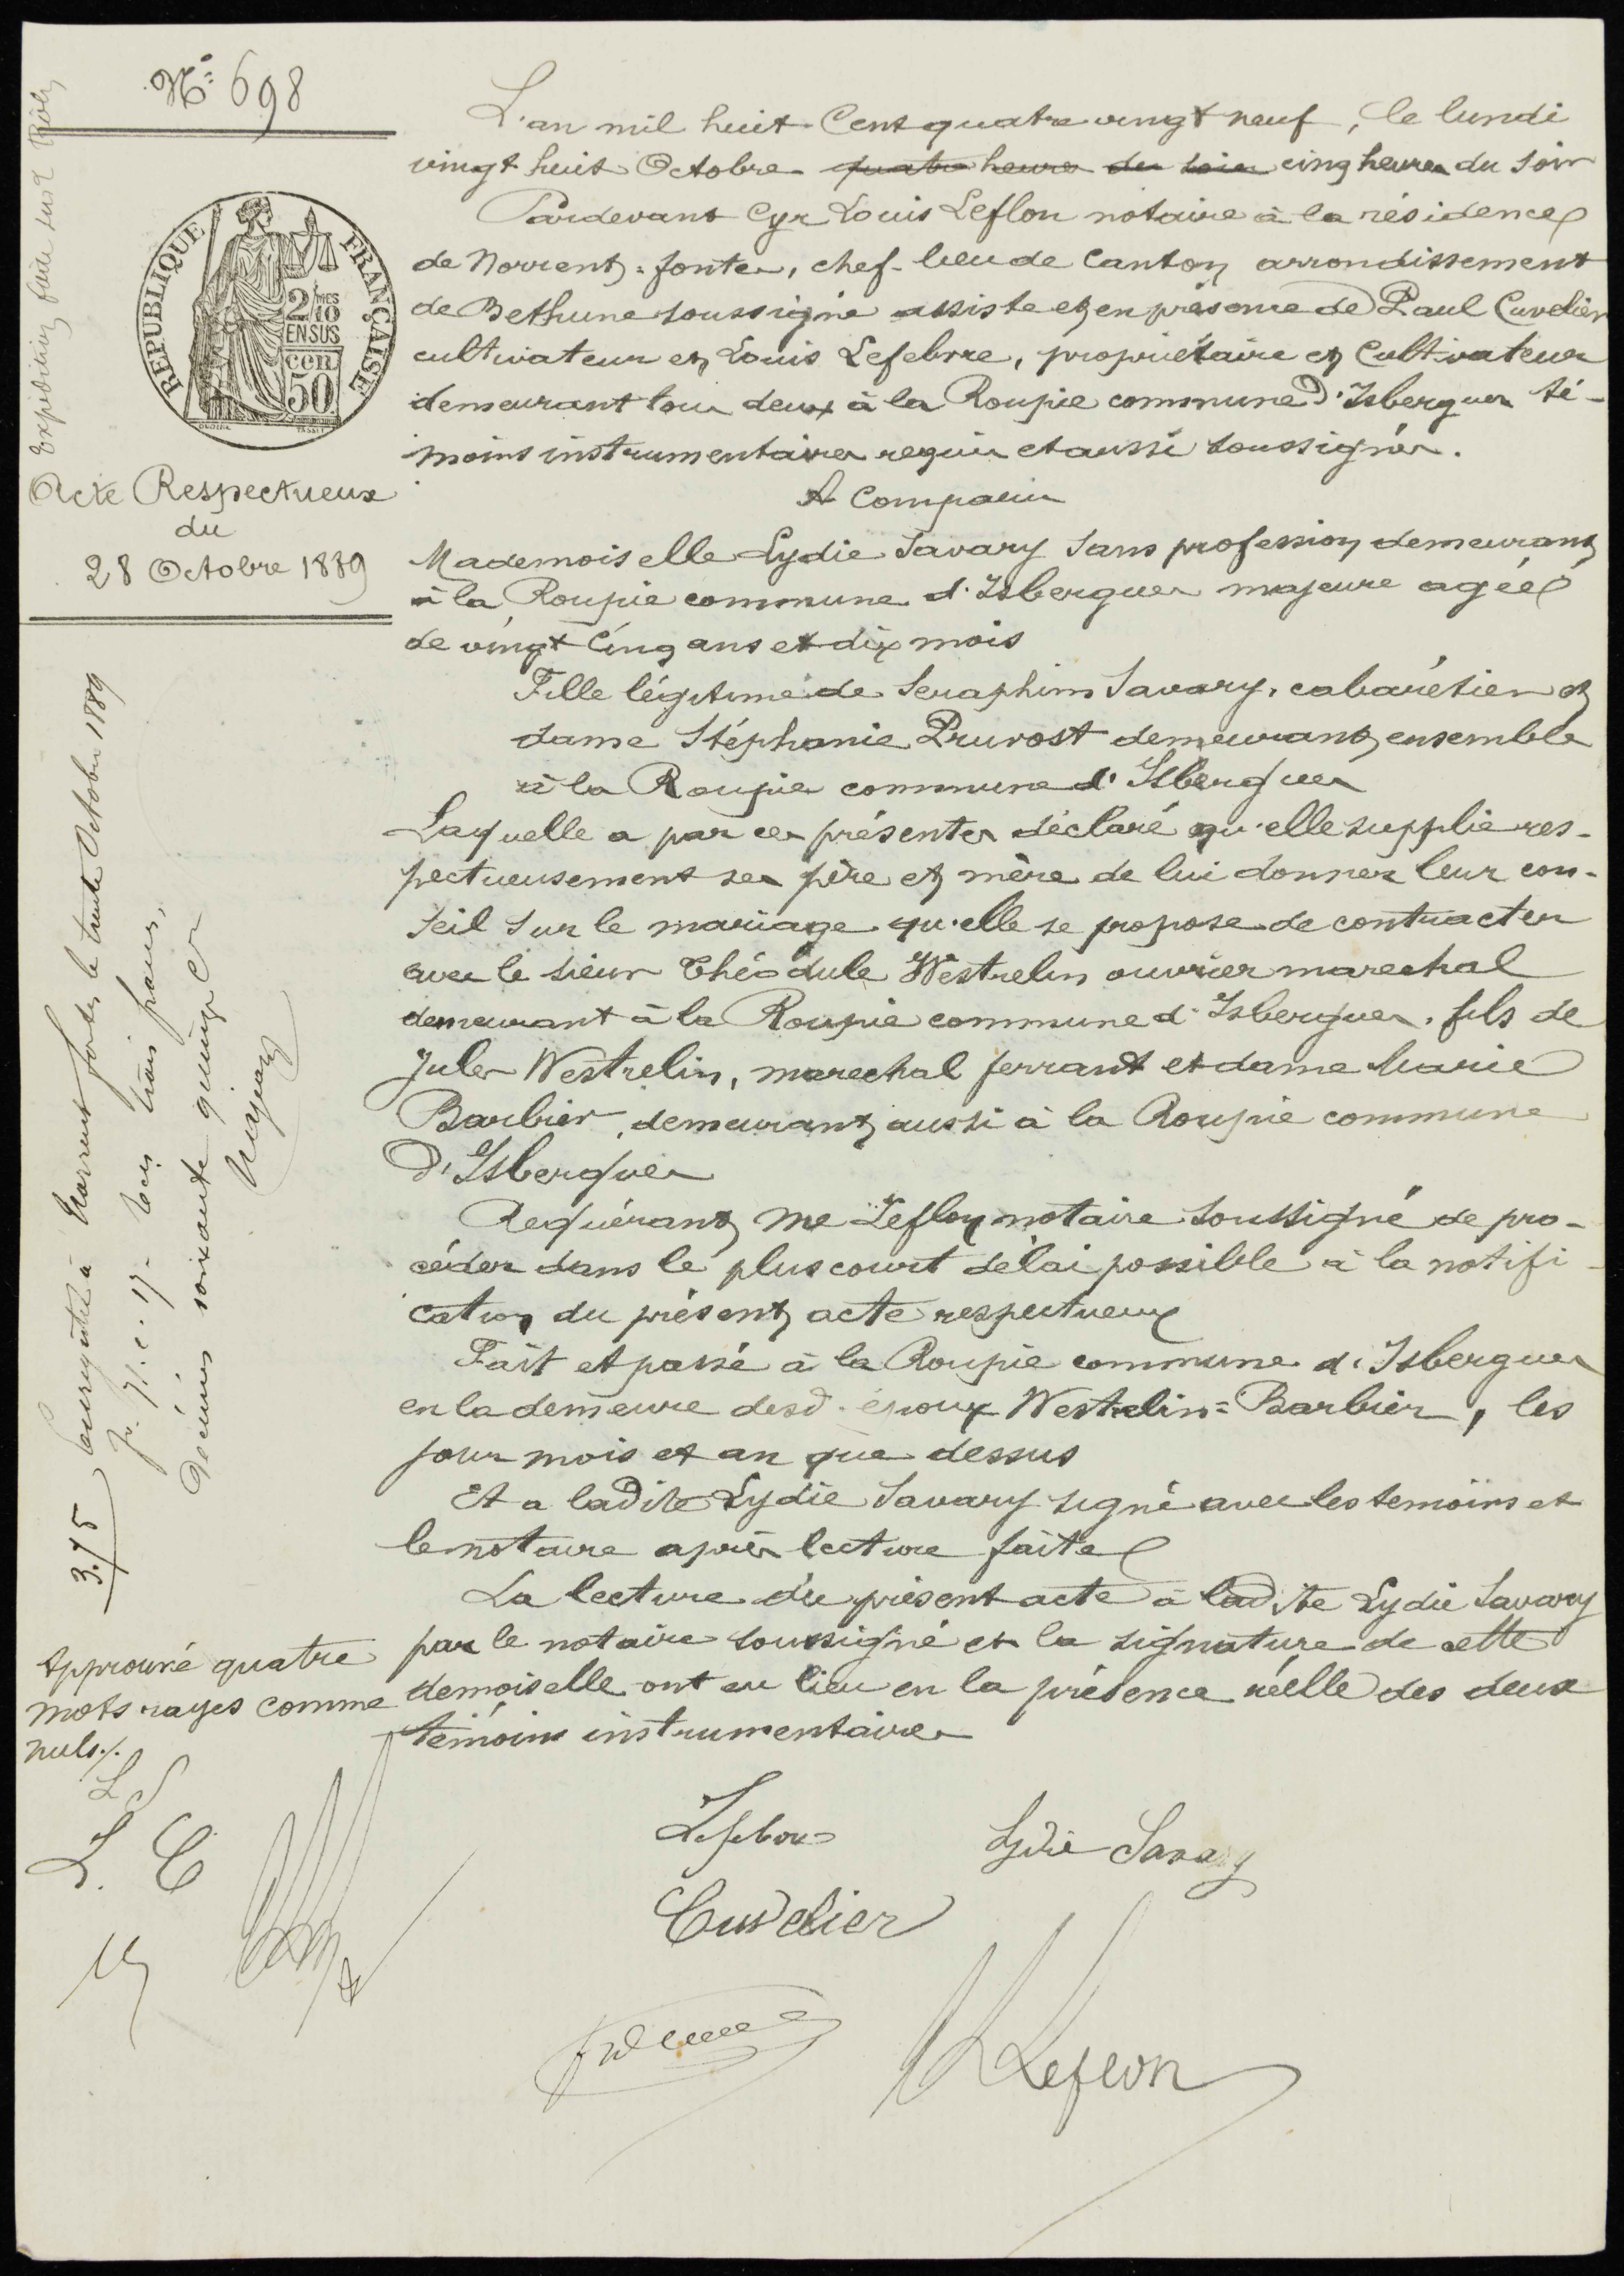 N° 698
Expédition faite sur 2 Rôles
RÉPUBLIQUE FRANÇAISE
2/10 MES
EN SUS
CEN
50
Acte Respectueux
du
28 Octobre 1889
L'an mil huit Cent quatre vingt neuf, le lundi
vingt huit Octobre quatre heures du soir cinq heures du soir
Pardevant Cyr Louis Leflon notaire à la résidence
de Norrent-fontes, chef-lieu de Canton arrondissement
de Bethune soussigné assisté et en présence de Paul Cuvelier
cultivateur et Louis Lefebvre, propriétaire et Cultivateur
demeurant tous deux à la Roupie commune d'Isbergues té-
moins instrumentaires requis et aussi soussignés.
A Comparu
Mademoiselle Lydie Savary sans profession demeurant
à la Roupie commune d'Isbergues majeure agée
de vingt cinq ans et dix mois
Fille légitime de Seraphim Savary, cabarétier et
dame Stéphanie Pruvost demeurant ensemble
à la Roupie commune d'Isbergues
Laquelle a par ces présentes déclaré qu'elle supplie res-
pectueusement ses père et mère de lui donner leur con-
seil sur le mariage qu'elle se propose de contracter
avec le sieur Théodule Westrelin ouvrier marechal
demeurant à la Roupie commune d'Isbergues, fils de
Jules Westrelin, marechal ferrant et dame Marie
Barbier, demeurant aussi à la Roupie commune
d'Isbergues
Requérant Me Leflon notaire soussigné de pro-
céder dans le plus court délai possible à la notifi-
cation du présent acte respectueux
Fait et passé à la Roupie commune d'Isbergues
en la demeure desd. époux Westrelin=Barbier, les
jour mois et an que dessus
Et a ladite Lydie Savary signé avec les temoins et
le notaire après lecture faite
La lecture du présent acte à ladite Lydie Savary
par le notaire soussigné et la signature de cette
demoiselle ont eu lieu en la présence réelle des deux
témoins instrumentaires
Enregistré à Norrent fontes le trente Octobre 1889
Reçu trois francs,
Décimes soixante quinze c
3.75
Approuvé quatre
mots rayés comme
nuls ./.
L S
L. C
Lefebvre
Lydie Savary
Cuvelier
Leflon